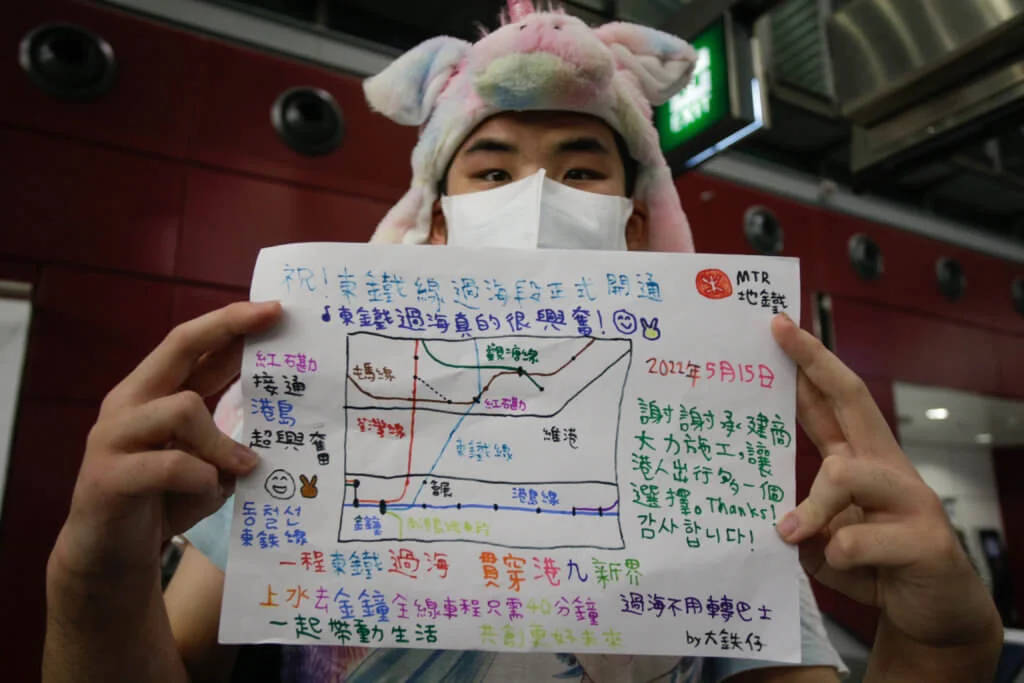 祝!東鐵線過海段正式開通
MTR
地鐵
♪東鐵過海真的很興奮!
紅磡
接通
港島
超興奮
동철선
東鉄線
屯馬線
觀塘線
紅磡
荃灣線
東鐵線
維港
會展
港島線
金鐘
2022年5月15日
謝謝承建商
大力施工,讓
港人出行多一個
選擇。Thanks!
감사합니다!
一程東鐵過海 貫穿港九新界
上水去金鐘全線車程只需40分鐘 過海不用轉巴士
一起帶動生活 共創更好未來
by大鉄仔
EXIT